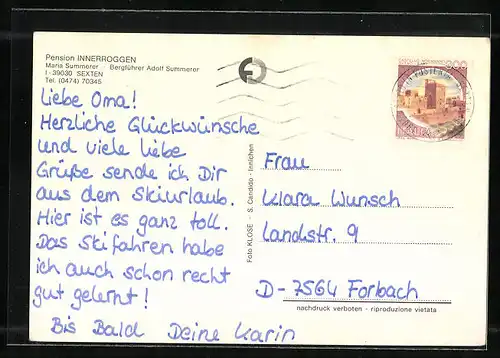 Pension INNERROGGEN
Maria Summerer - Bergführer Adolf Summerer
I - 39030 SEXTEN
Tel. (0474) 70345
Liebe Oma!
Herzliche Glückwünsche
und viele liebe
Grüße sende ich Dir
aus dem Skiurlaub.
Hier ist es ganz toll.
Das Skifahren habe
ich auch schon recht
gut gelernt!
Bis Bald Deine Karin
Foto KLOSE - S. Candido - Innichen
Frau
Klara Wunsch
Landstr. 9
D-7564 Forbach
nachdruck verboten - riproduzione vietata